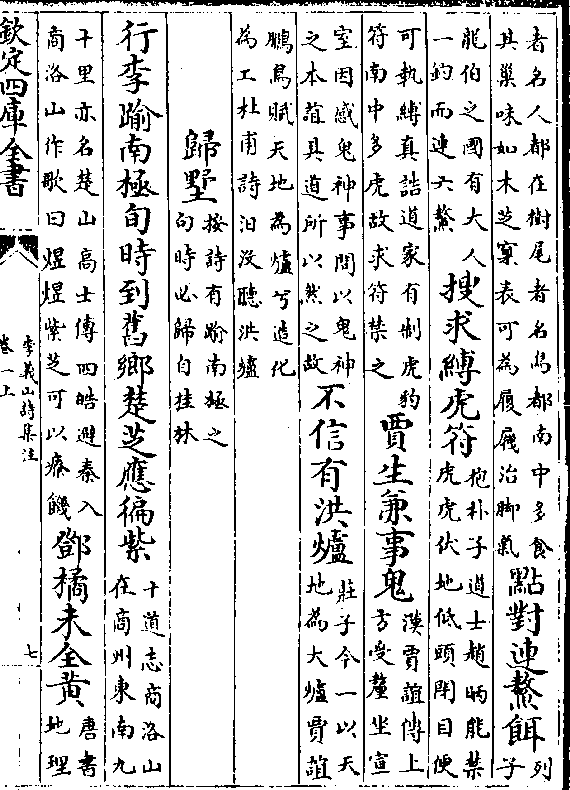 者名人都在樹尾者名鳥都南中多食
其巢味如木芝窠表可為履屧治脚氣
點對連鰲餌
列
子
龍伯之國有大人
一釣而連六鰲
搜求縛虎符
抱朴子道士趙昞能禁
虎虎伏地低頭閉目便
可執縛真誥道家有制虎豹
符南中多虎故求符禁之
賈生兼事鬼
漢賈誼傳上
方受釐坐宣
室因感鬼神事問以鬼神
之本誼具道所以然之故
不信有洪爐
莊子今一以天
地為大爐賈誼
鵬鳥賦天地為爐兮造化
為工杜甫詩汩沒聽洪爐
歸墅
按詩有踰南極之
句時必歸自桂林
行李踰南極旬時到舊鄉楚芝應徧紫
十道志商洛山
在商州東南九
十里亦名楚山高士傳四皓避秦入
商洛山作歌曰煜煜紫芝可以療饑
鄧橘未全黃
唐書
地理
欽定四庫全書
李義山詩集注
卷一上
七